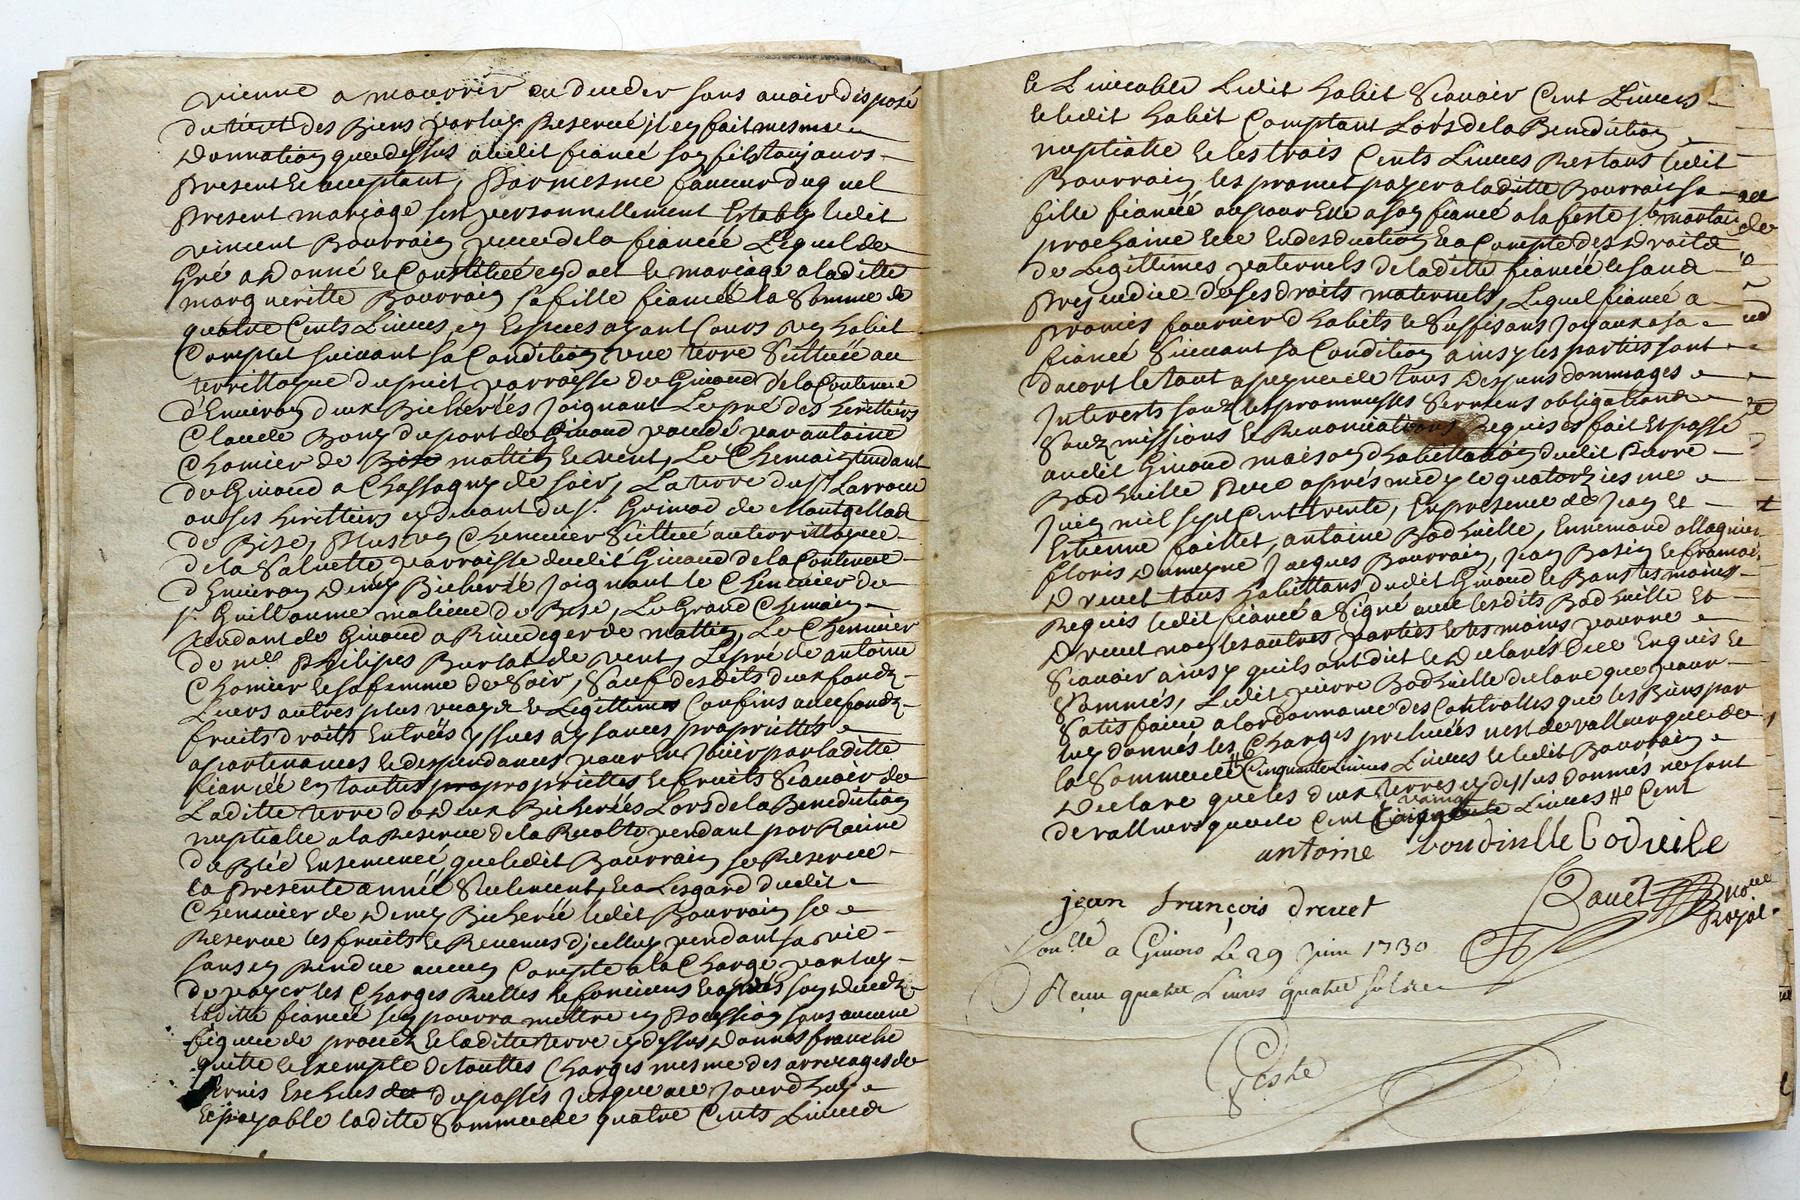 vienne a mourrir ou deceder sans avoir disposé
du tiert des Biens par luy Reservé il en fait mesme
Donnation que dessus audit fiancé son fils toujours
present et acceptant, Par mesme faveur duquel
present mariage sest personnellement Establis ledit
vincent Bourrain pere de la fiancée Lequel de
Gré a Donné et Constitué en dot et mariage a laditte
margueritte Bourrain sa fille fiancée la Somme de
quatre Cents Livres en Especes ayant Cours un habit
Complet suivant sa Condition une terre Sittuée au
territtoyre du puit parroisse de Givord de la Contenue
d'Environ deux Bicherées Joignant Le pré des heritiers
Claude Bony du port de Givord
Chomier de Bise mattin et vent, Le Chemain tendant
de Givord a Chassagny de soir, La terre du sr Larroue
ou ses heritiers cy devant du sr. Grimod de
de Bise, Plus un Chenevier Sittué au territtoyre
de la parroisse dudit Givord de la Contenue
d'Environ Demy Bicherée Joignant le Chenevier de
sr. Guillaume de Bise, Le Grand Chemain
tendant de Givord a Rivedegier de mattin, Le Chenevier
de Philipes Burlat de vent, Le pré de antoine
Chomier et sa femme de Soir, Sauf desdits deux fondz
Leurs autres plus vrays et Legittimes Confins avec fondz
fruits droits Entrées yssues aysances propriettés
apartenances et despendances pour En Jouir par laditte
fiancée en touttes propropriettes et fruits Scavoir de
Laditte terre de Deux Bicherées Lors de la Benediction
nuptialle a la Reserve de la Recolte pendant par Racine
du Bled Ensemencé, que ledit Bourrain se Reserve
la presente année Seulement, Et a Lesgard dudit
Chenevier de Demy Bicherée ledit Bourrain se
Reserve les fruits et Revenus d'jcelluy pendant sa vie
sans en Rendre aucun Compte a la Charge par luy
de payer les Charges Reelles et foncieres et apres son Decedz
laditte fiancée sen pourra mettre en Possession sans aucune
figure de procedz et laditte terre cy dessus Donnée franche
quitte et Exempte de touttes Charges mesme des arrerages de
servis Escheus du passés jusques au jourdhuy
Et payable laditte Somme de quatre Cents Livres
et Livrable Ledit habit Scavoir Cent Livres
et ledit habit Comptant Lors de la Benediction
nuptialle et les trois Cents Livres Restans ledit
Bourrain les promet payer a laditte Bourrain sa
fille fiancée ou pour Elle a son fiancé a la feste St martin
prochaine et ce En desduction et a Compte des Droits
de Legittimes paternels de laditte fiancée et sans
Prejudice de ses droits maternels, Lequel fiancé a
promis fournir d'habits et suffisans Joyaux a sa
fiancée Suivant sa Condition ainsy les parties sont
dacort le tout a peyne de tous Despens dommages
Interests souz les promesses Serments obligations
Souzmissions et Renonciations Requises fait et passé
audit Givord maison d'habittation dudit Pierre
Bodhuille Pere aprés midy le quatorziesme
Juin mil sept Cent trente, En presence de Jean et
Estienne faillet, antoine Bodhuille, Ennemond allagnier
floris Dumeyne Jacques Bourrain, Jean Basin et francois
Drevet tous habittans dudit Givord et Bans tesmoins
Requis ledit fiancé a Signé avec lesdits Bodhuille Et
Drevet non les autres parties et tesmoins pour ne
Scavoir ainsy quils ont dit et Declarés de ce Enquis et
Sommés, Ledit pierre Bodhuille declare que pour
Satisfaire a lordonnance des Controlles que les Biens par
luy donnés les Charges preleuées nest de valleur que de
la Somme de Cinquante Livres et ledit Bourrain
Declare que les deux terres cy dessus donnés ne sont
de valleurs que de Cent Livres
antoine boudinlle bodieile
jean françois drevet
Noue
Royal.
Conlle a Givors Le 29 Juin 1730
Reçu quatre Livres quatre sols